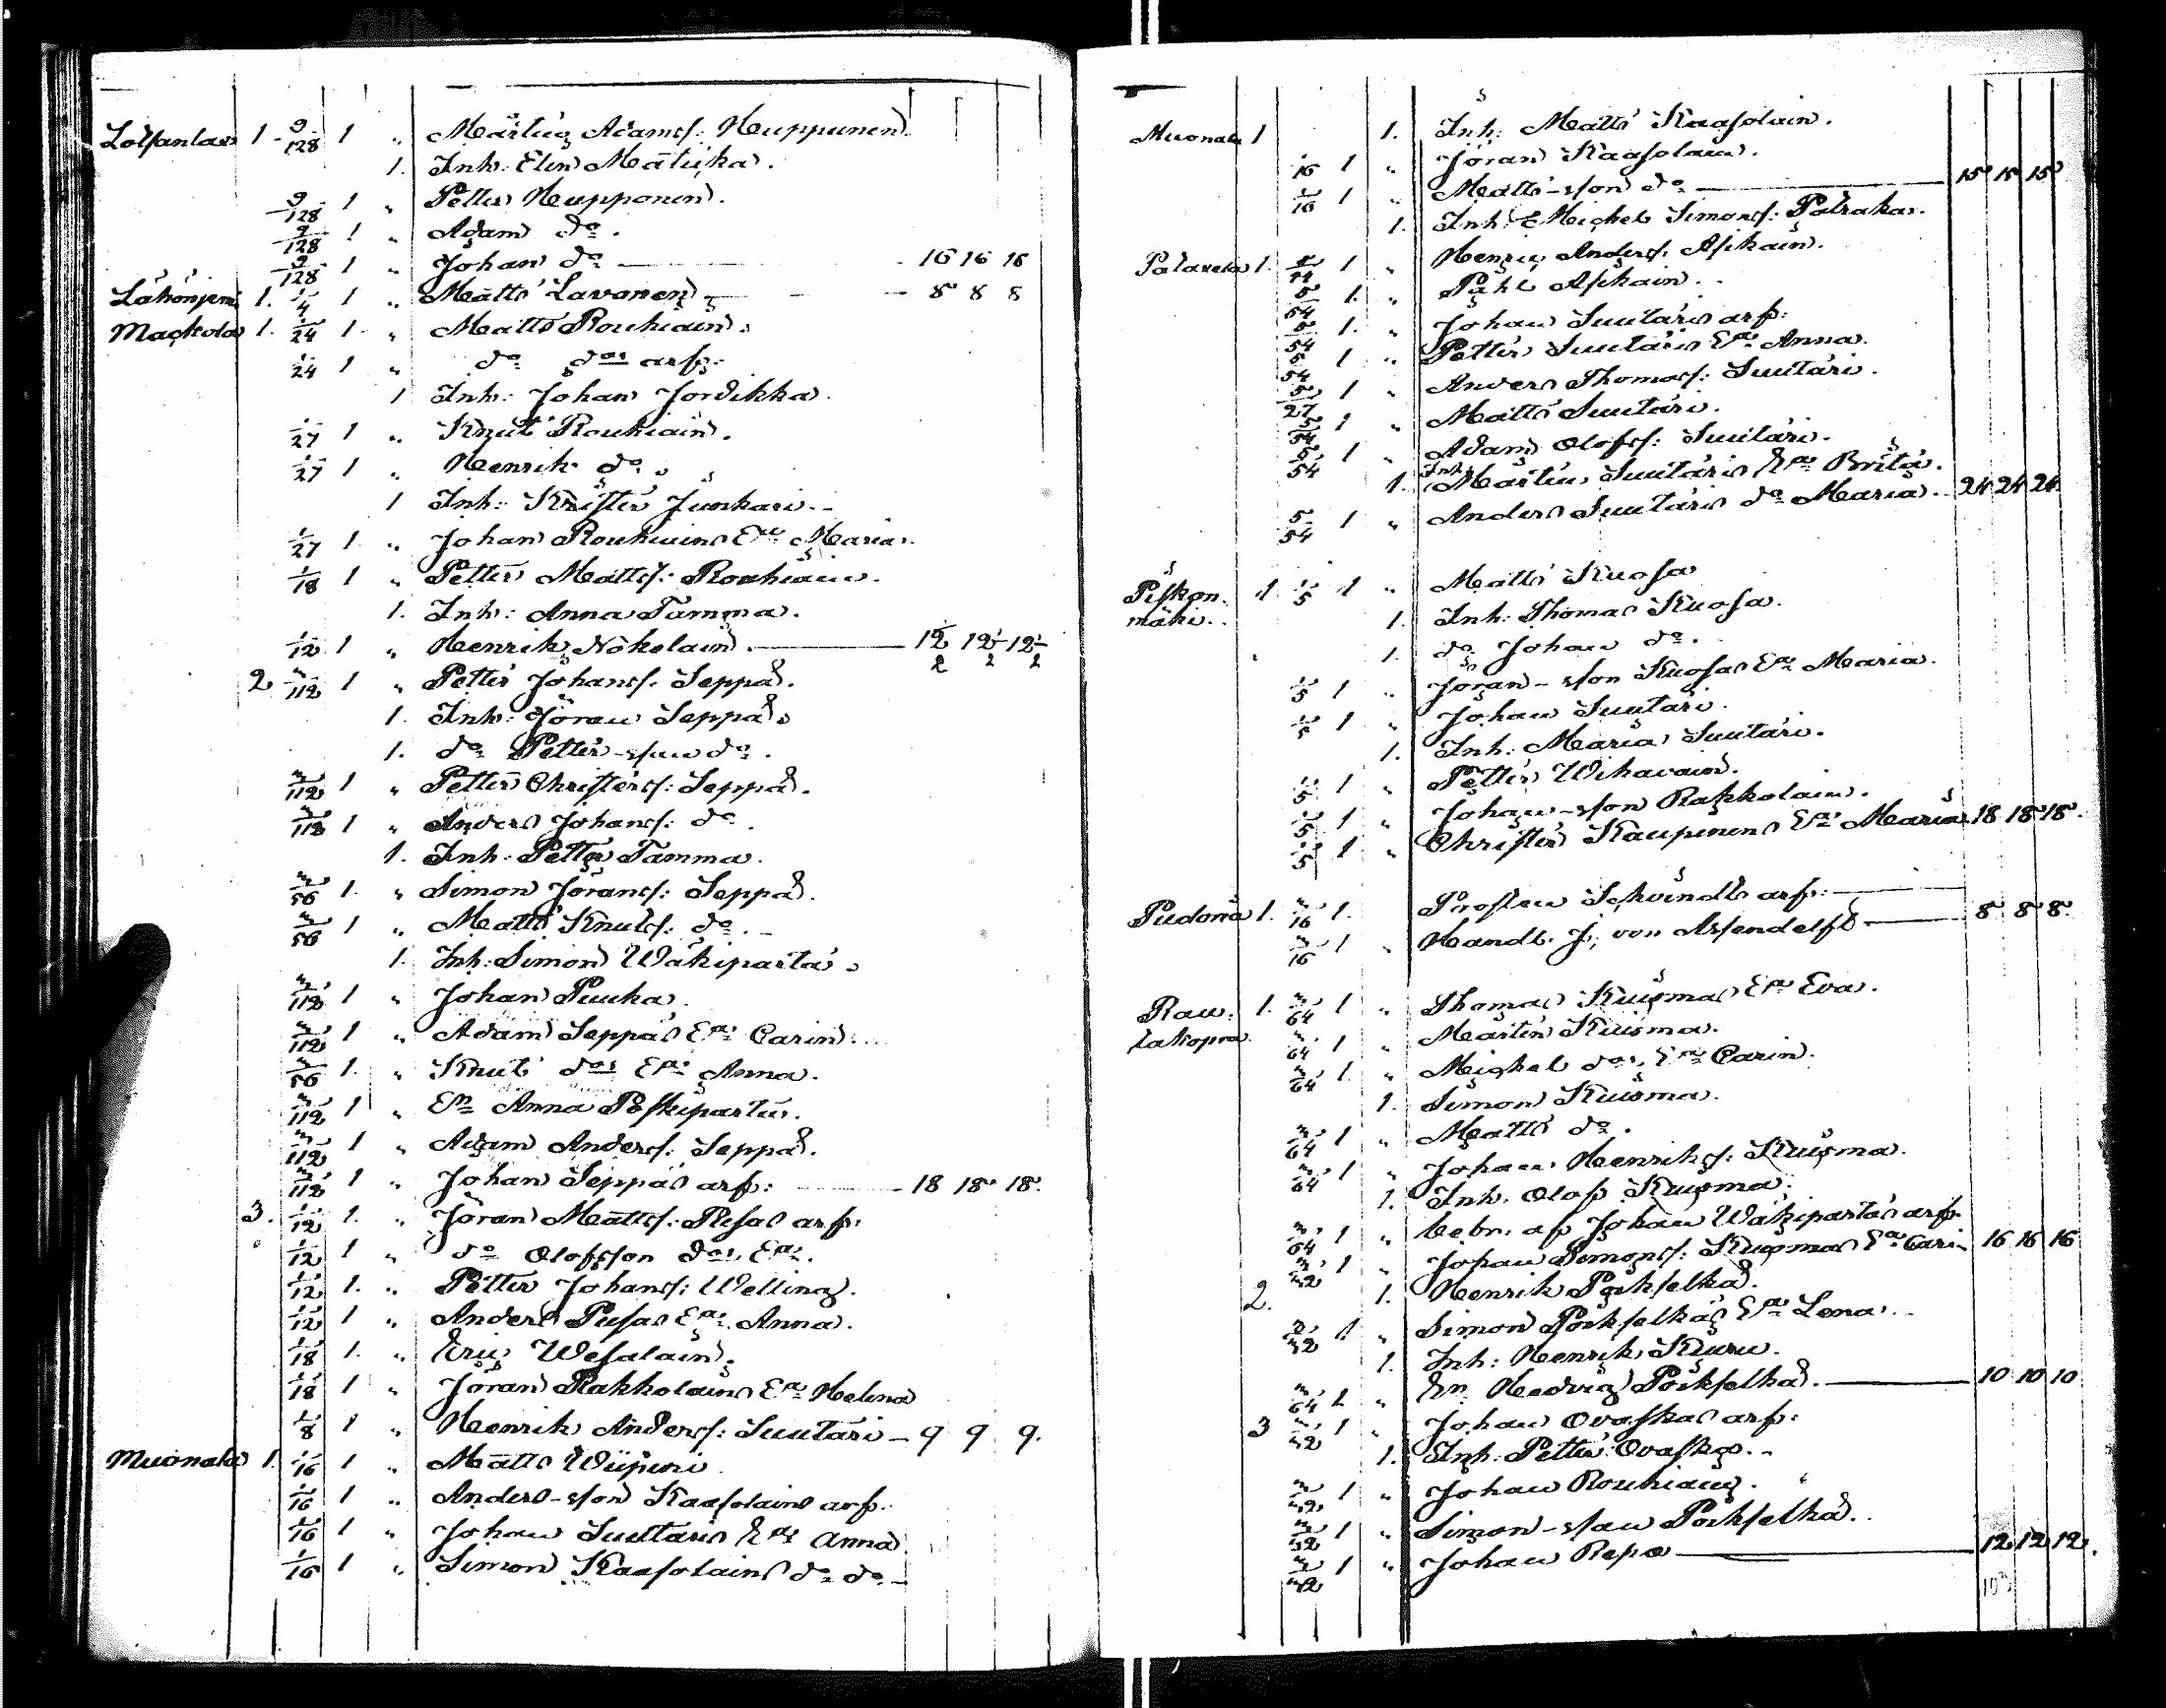 Lolfanlax 1 9/128 1 „ Mårtin Adamss: Huppunen.
1. Inh: Elin Matiska.
9/128 1 „ Petter Hupponen.
9/128 1 „ Adam do.
9/128 1 „ Johan do — 16 16 16
Lähönjemi 1. 1/4 1 „ Matts Lavonen — 8 8 8
Mackola 1. 1/24 1 „ Matts Rouhiain.
1/24 1 „ do dos arf:
1 Inh: Johan Jordikka.
1/27 1 „ Knut Rouhiain.
1/27 1 „ Henrik do.
1 Inh: Krister Junkari.
1/27 1 „ Johan Rouhiains Eka Maria.
1/18 1 „ Petter Mattss: Rouhiain.
1. Inh: Anna Tamma.
1/12 1 „ Henrik Nokolain. — 12 1/2 12 1/2 12 1/2
2 3/112 1 „ Petter Johanss: Seppä.
1. Inh: Jöran Seppä.
1. do Petter-son do.
3/112 1 „ Petter Christerss: Seppä.
3/112 1 „ Anders Johanss: do.
1. Inh: Petter Tamma.
3/56 1. „ Simon Jöranss: Seppä.
3/56 1 „ Matts Knutss: do.
1. Inh: Simon Wäkiparta.
3/112 1 „ Johan Puuka.
3/112 1 „ Adam Seppäs Eka Carin.
3/56 1. „ Knut dos Eka Anna.
3/112 1 „ En Anna
3/112 1 „ Adam Anderss: Seppä.
3/112 1 „ Johan Seppäs arf: — 18 18 18.
3. 1/12 1. „ Jöran Mattss: Pusas arf:
1/12 1 „ do Olofsson dos Eka.
1/12 1. „ Petter Johanss: Welling.
1/12 1 „ Anders Pusas Eka Anna.
1/18 1. „ Eric Wesalain.
1/18 1 „ Jöran Rakkolains Eka Helena
1/8 1 „ Henrik Anderss: Suutari — 9 9 9.
Muonala 1. 1/16 1 „ Matts Wiipuri
1/16 1 „ Anders-son Kaasolains arf.
1/16 1 „ Johan Suutaris Eka Anna.
1/16 1 „ Simon Kaasolains do do.
Muonala 1 1. Inh: Matts Kaasolain.
1/16 1 „ Jöran Kaasolain.
1/16 1 „ Matts-son do — 15 15 15
1. Inh: Michel Simonss: Patraka.
Palavela 1. 1 „ Henric Anderss: Asikain.
5/54 1. „ Påhl Asikain.
5/54 1. „ Johan Suutaris arf:
5/54 1 „ Petter Suutaris Eka Anna.
5/27 1 „ Anders Thomass: Suutari.
5/54 1 „ Matts Suutari.
5/54 1 „ Adam Olofss: Suutari.
1. Inh: Mårtin Suutaris Eka Brita.
5/54 1 „ Anders Suutaris do Maria. 24 24 24
Piskon- 1 1/5 1 „ Matts Kuosa
mäki. 1. Inh: Thomas Kuosa.
1. do Johan do.
1/5 1 „ Jöran-son Kuosas Eka Maria.
1/5 1 „ Johan Suutari.
1. Inh: Maria Suutari.
1/5 1 „ Petter Wihavain.
1/5 1 „ Johan-son Rakkolain.
1/5 1 „ Christer Kaupinens Eka Maria 18 18 18.
Pudona 1. 3/16 1. Prosten Schvindts arf: —
3/16 1 „ Handl: J. von Assendelft — 8 8 8.
Rau- 1. 3/64 1 „ Thomas Kuismas Eka Eva.
takopra. 3/64 1 „ Mårtin Kuisma.
3/64 1. „ Michel dos Eka Carin.
1. Simon Kuisma.
3/64 1 „ Matts do.
3/64 1 „ Johan Henrikss: Kuisma.
1. Inh: Olof Kuisma.
3/64 1 „ Johan Wäkipartas arf.
3/32 1 „ Johan Simonss: Kuismas Eka Cari- 16 16 16
2. 1. Henrik Pöskselkä.
3/32 1 „ Simon Pöikselkäs Eka Lena.
1. Inh: Henrik Kuuru.
3/64 1 „ En Hedvig Pöikselkä. — 10 10 10
3 3/32 1 „ Johan Ovaskas arf:
1. Inh: Petter Ovaska.
3/32 1 „ Johan Rouhiain.
3/32 1 „ Simon-son Pöikselkä.
3/32 1 „ Johan Repo — 12 12 12.